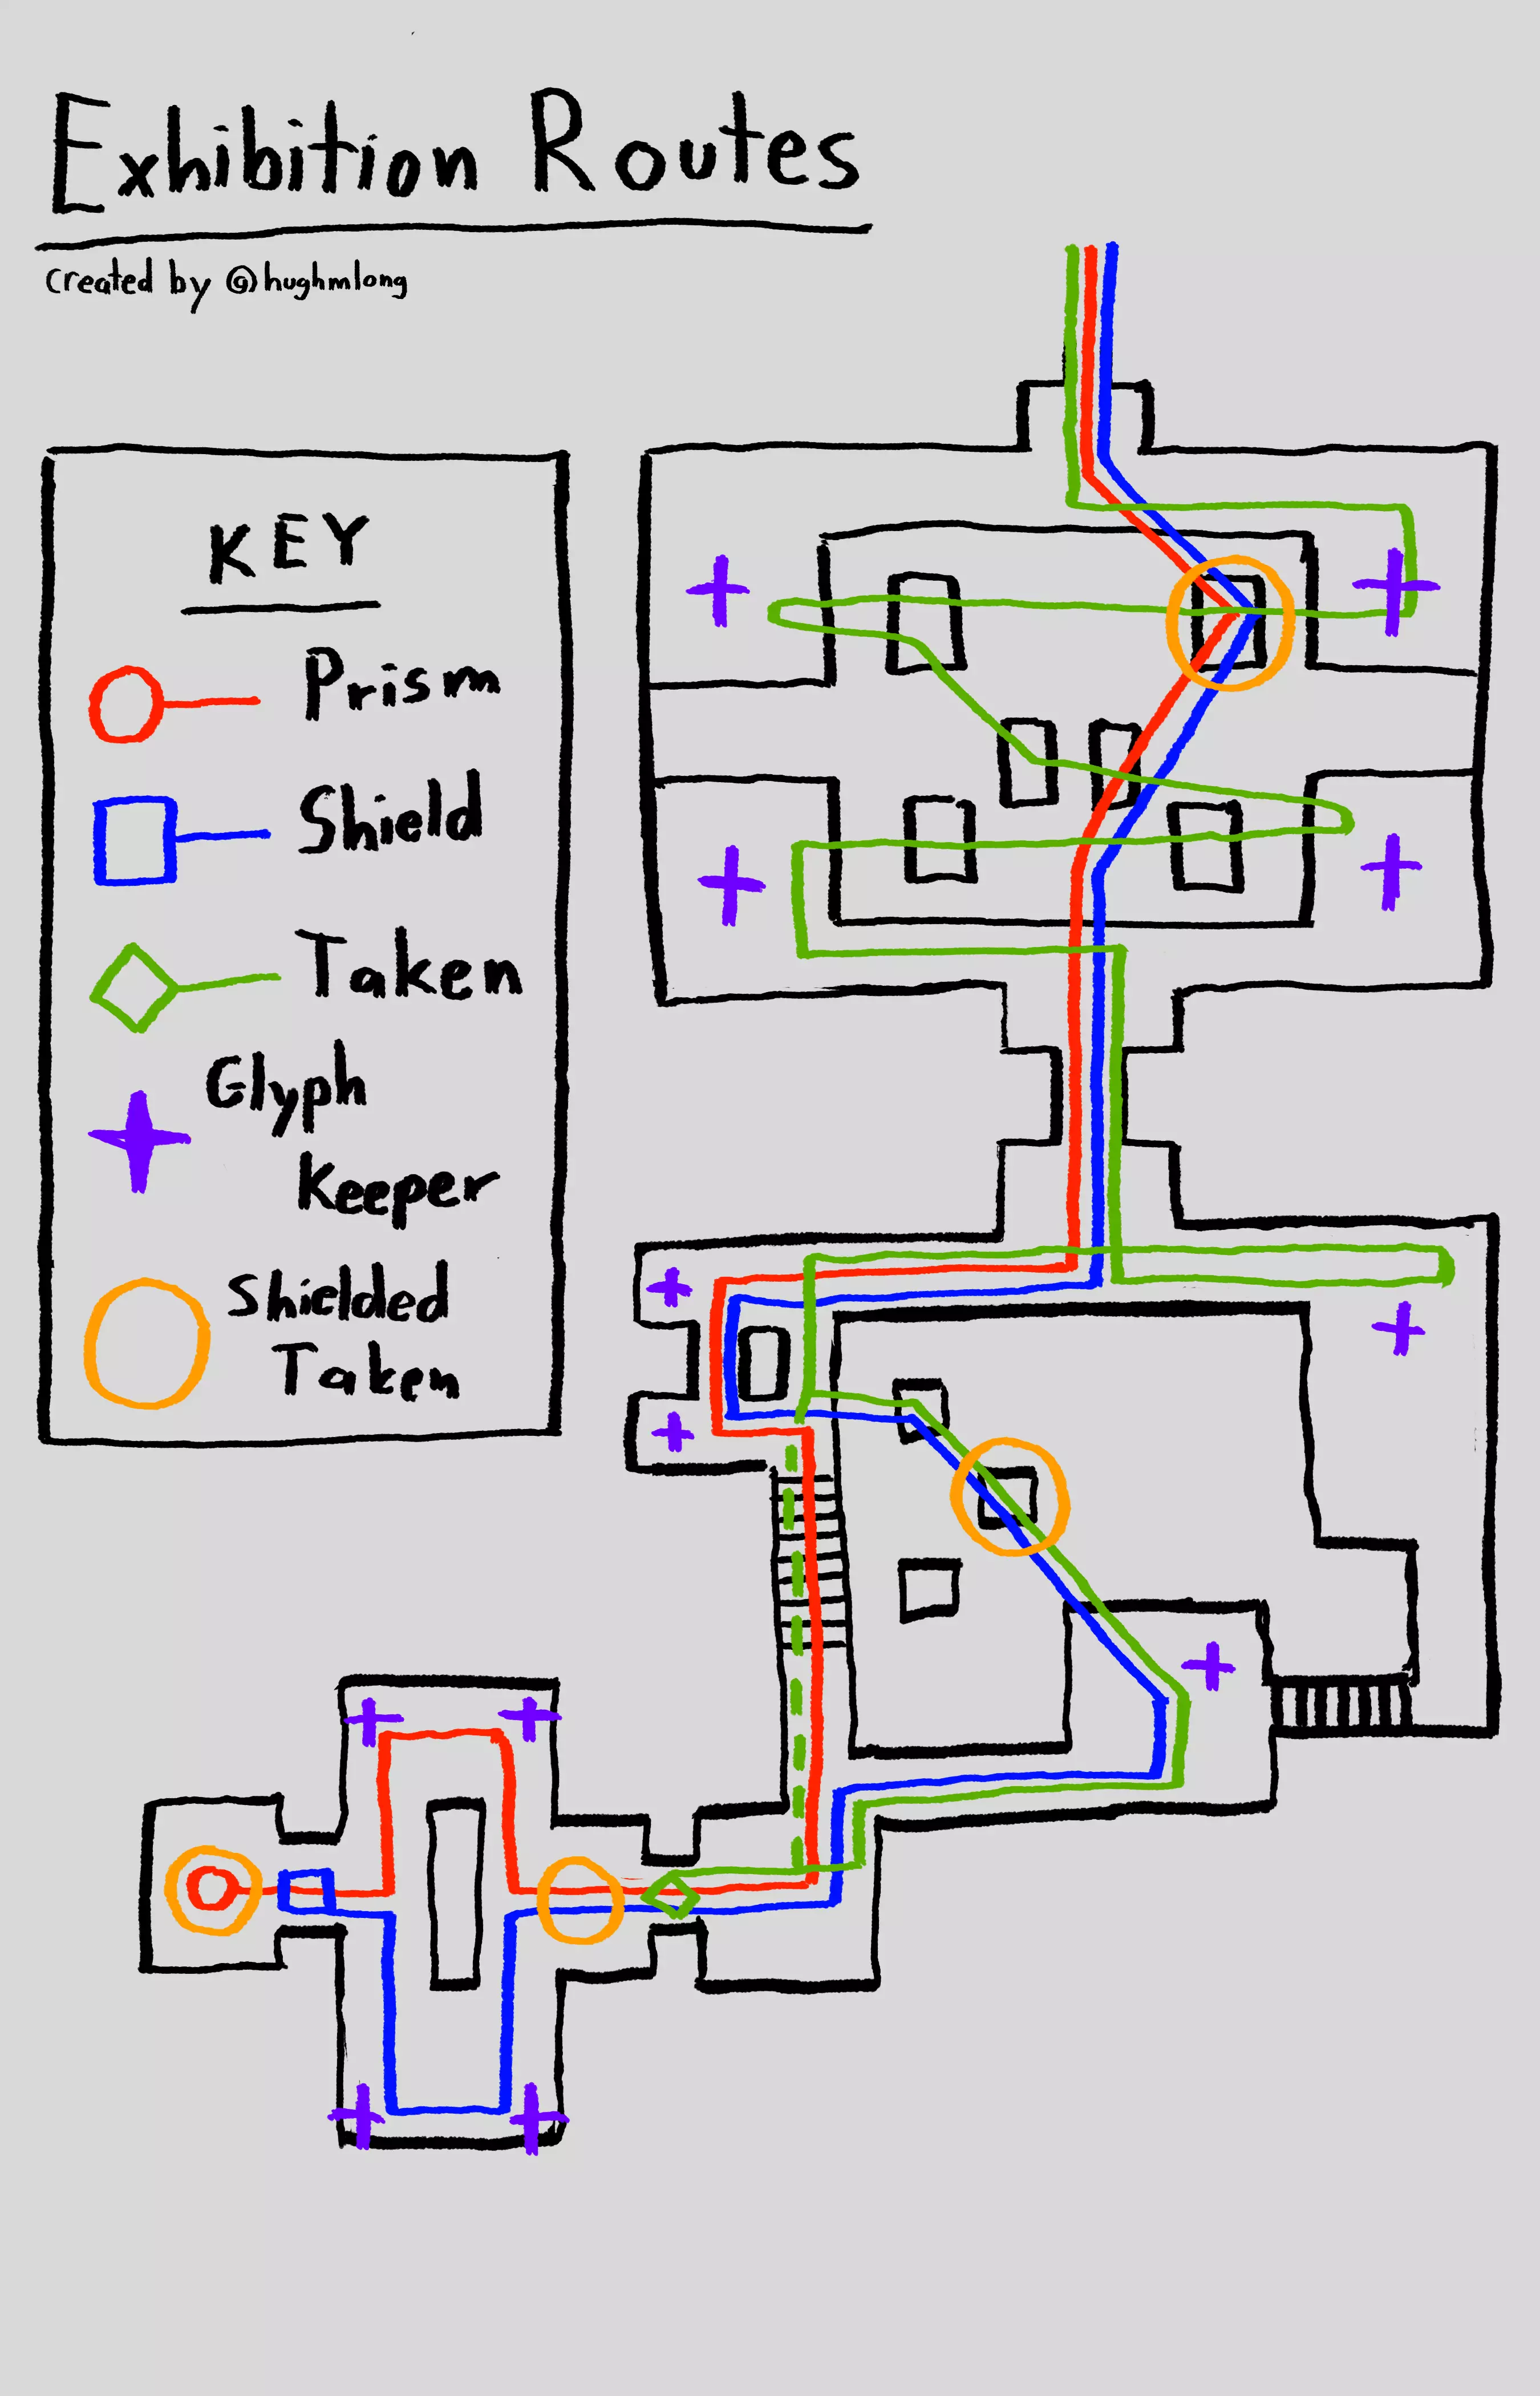 Exhibition Routes
created by @hughmlong
KEY
Prism
Shield
Taken
Glyph
Keeper
Shielded
Taken